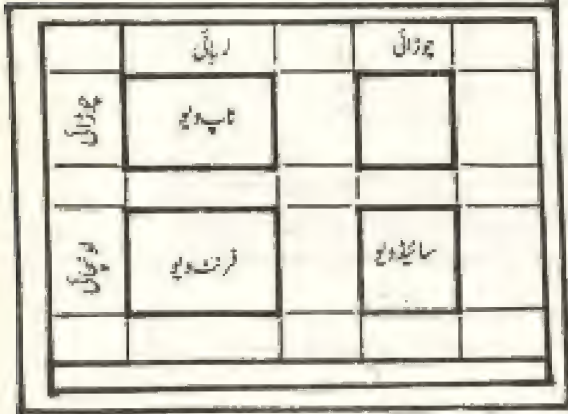 لمبائی
چوڑائی
چوڑائی
ٹاپ ویو
اونچائی
فرنٹ ویو
سائیڈ ویو